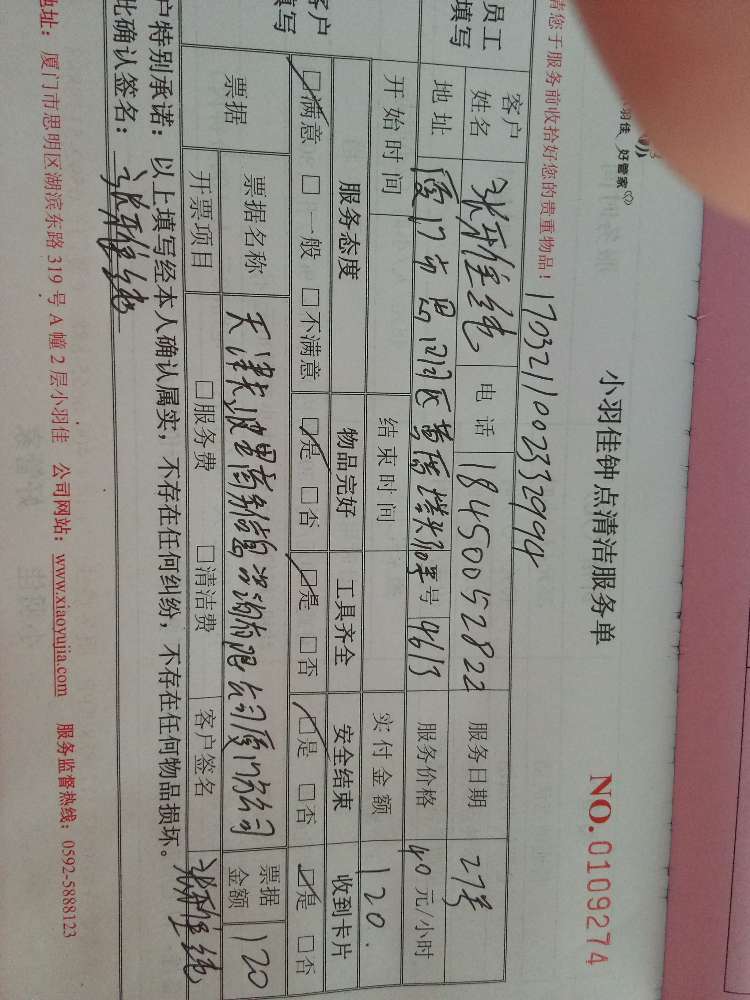 小羽佳 好管家
小羽佳钟点清洁服务单
NO. 0109274
请您于服务前收拾好您的贵重物品！
1703211002332994
员工填写
客户姓名 电话 18450052822 服务日期 27号
地址 厦门市思明区 号 9613 服务价格 40 元/小时
开始时间 结束时间 实付金额 120.
客户填写
服务态度 物品完好 工具齐全 安全结束 收到卡片
☑满意 □一般 □不满意 ☑是 □否 ☑是 □否 ☑是 □否 ☑是 □否
票据 票据名称 天津 商务 咨询有限公司厦门分公司 票据金额 120
开票项目 □服务费 □清洁费 客户签名
户特别承诺：以上填写经本人确认属实，不存在任何纠纷，不存在任何物品损坏。
此确认签名：
地址：厦门市思明区湖滨东路 319 号 A 幢 2 层小羽佳 公司网站：www.xiaoyujia.com 服务监督热线：0592-5888123